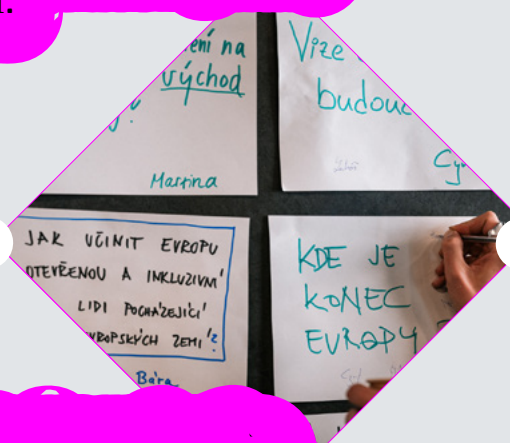 ení na
východ
Martina
Vize
JAK UČINIT EVROPU
OTEVŘENOU A INKLUZIVNÍ
LIDI POCHÁZEJÍCÍ
ZEMÍ?
Bára
KDE JE
KONEC
EVROPY